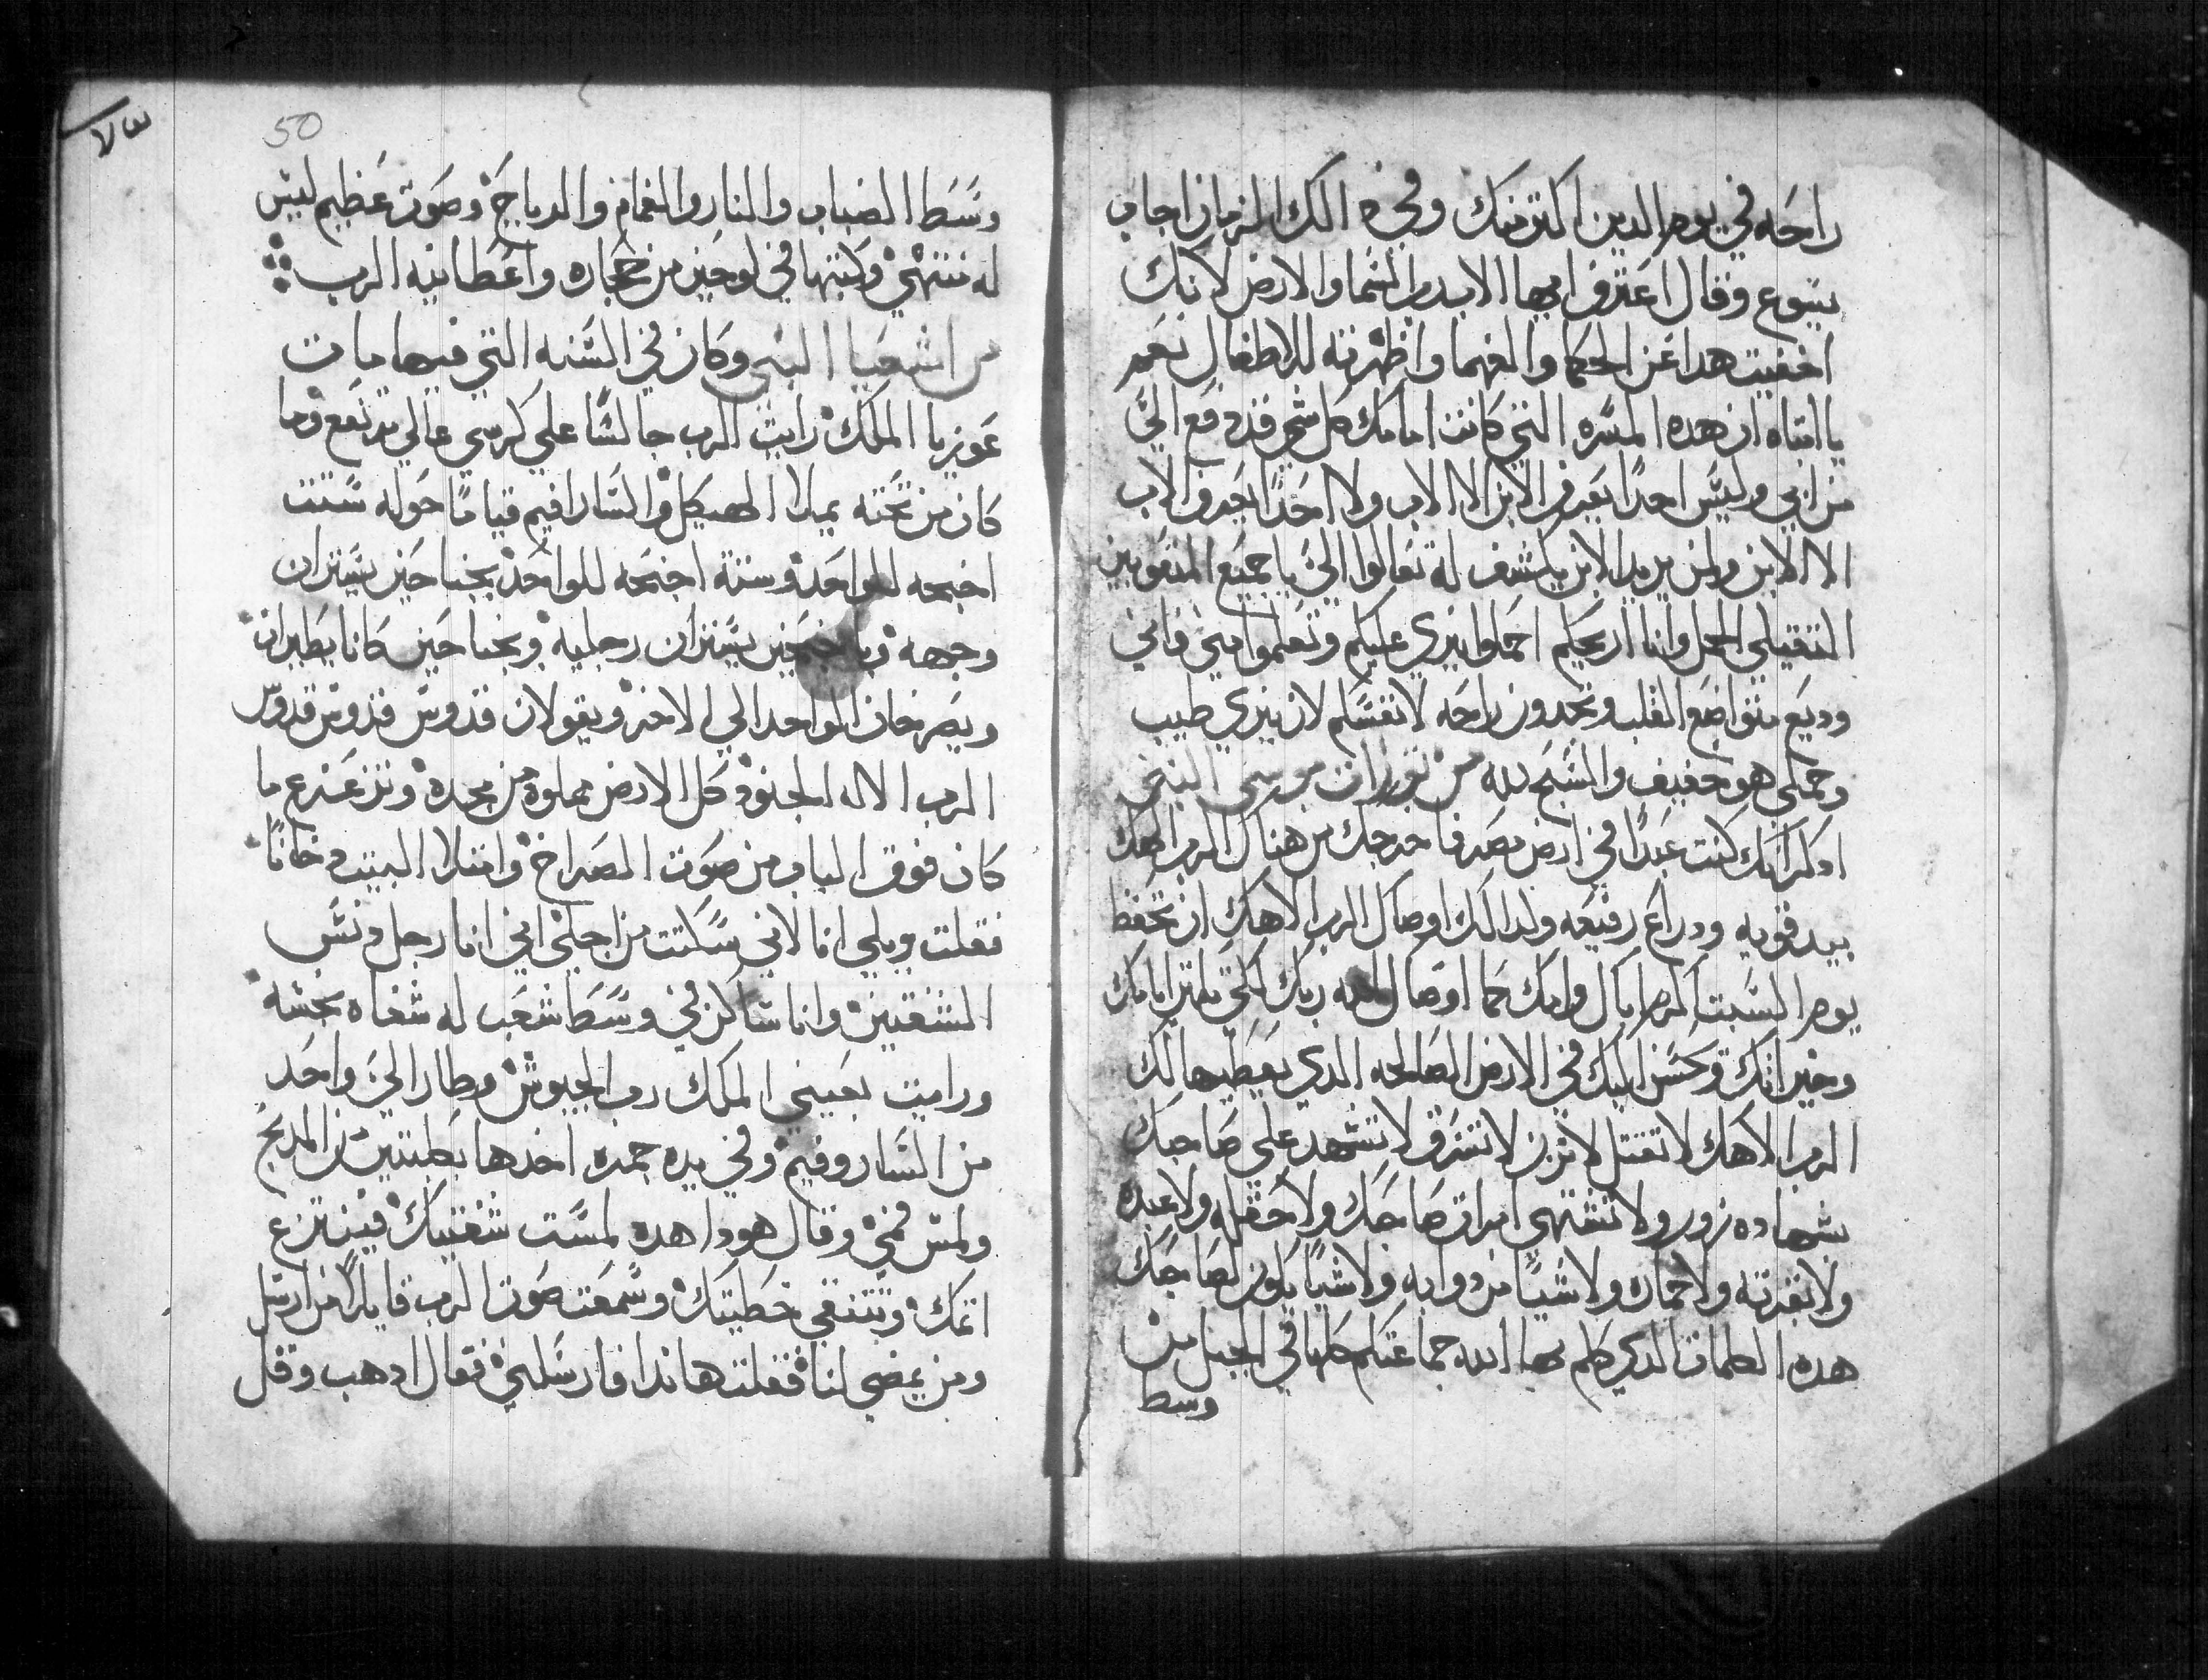 راحه في يوم الدين اكتر منك وفي دالك الزمان اجاب
يسوع وقال اعترف ايها الاب رب السما والارض لانك
اخفيت هدا عن الحكما والفهما واظهرته للاطفال نعم
يا ابتاه ان هده المسره التي كانت امامك كل شي قد دفع اليّ
من ابي وليس احدًا يعرف الابن الا الاب ولا احدًا يعرف الاب
الا الابن ولمن يريد الابن يكشف له تعالوا اليّ يا جميع المتعوبين
التقيلي الحمل وانا اريحكم احملوا نيري عليكم وتعلموا مني فاني
وديع متواضع القلب وتجدون راحه لانفسكم لان نيري طيب
وحملي هو خفيف والسبح لله من توراة موسي النبي
ادكر انك كنت عبدًا في ارض مصر فاخرجك من هناك الرب الهك
بيد قويه ودراع رفيعه ولدالك اوصاك الرب الاهك ان تحفظ
يوم السبت اكرم اباك وامك كما اوصاك الله ربك لكي تكتر ايامك
وخيراتك وتحسن اليك في الارض الصالحه الدي يعطيها لك
الرب الاهك لا تقتل لا تزن لا تسرق لا تشهد علي صاحبك
بشهاده زور ولا تشتهي امراة صاحبك ولا حقله ولا عبده
ولا بقرته ولا حماره ولا شيًا من دوابه ولا شيًا يكون لصاحبك
هده الكلمات الدي كلم بها الله جماعتكم كلها في الجبل من
وسط
50
٧٣
وسط الضباب والنار والغمام والدياجي وصوت عظيم ليس
له منتهي وكتبها في لوحين من حجاره واعطانيه الرب
من اشعيا النبي وكان في السنه التي فيها مات
عوزيا الملك رايت الرب جالسًا علي كرسي عالي مرتفع وما
كان من تحته يملا الهيكل والسارافيم قيامًا حوله ستت
اجنحه للواحد وستة اجنحه للواحد بجناحين يستران
وجهه وباجنحين يستران رجليه وبجناحين كانا يطيران
ويصرخان الواحد الي الاخر ويقولان قدوس قدوس قدوس
الرب الاله الجنود كل الارض مملوة من مجده وتزعزع ما
كان فوق الباب من صوت الصراخ وامتلا البيت دخانًا
فقلت ويلي انا لاني سكتت من اجلي اني انا رجل دنس
الشفتين وانا ساكن في وسط شعب له شفاه نجسه
ورايت بعيني الملك رب الجيوش وطار اليّ واحد
من الساروفيم وفي يده جمره اخدها بكلبتين من المدبح
ولمس فمي وقال هودا هده لمست شفتيك فينتزع
اتمك وتتنقي خطيتك وسمعت صوت الرب قايلاً من ارسل
ومن يمضي لنا فقلت هاندا فارسلني فقال ادهب وقل